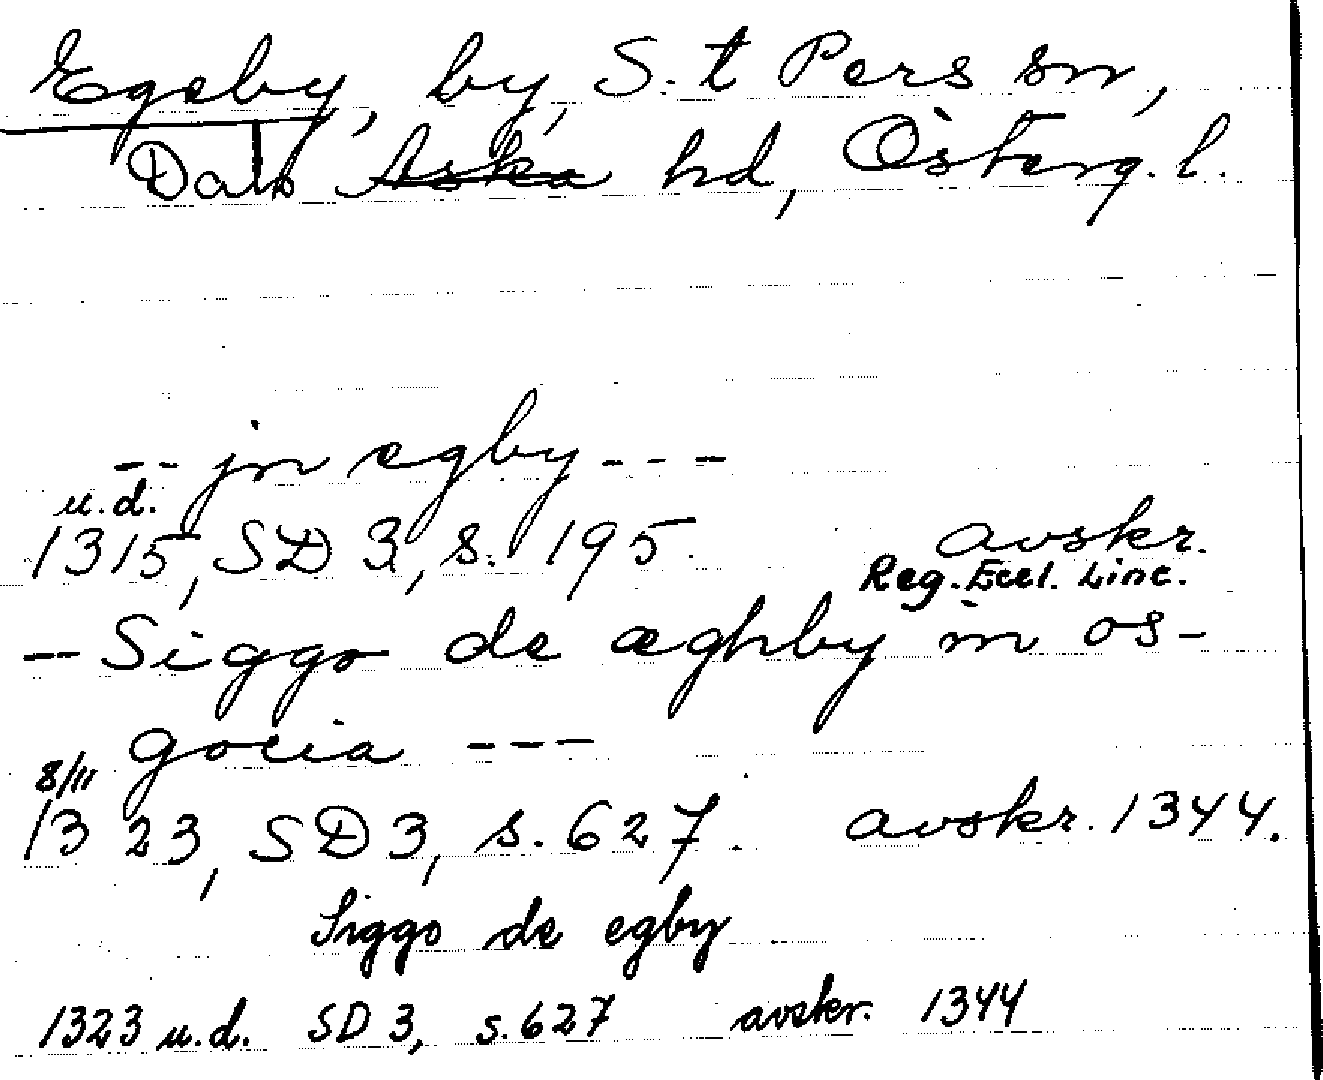 Egeby, by, S:t Pers sn,
Dals Aska hd, Österg. l.
-- jn egby ---
u.d.
1315, SD 3, s. 195. avskr.
Reg. Eccl. Linc.
-- Siggo de æghby in os-
gocia ---
8/11
1323, SD3, s. 627. avskr. 1344.
Siggo de egby
1323 u.d. SD 3, s. 627 avskr. 1344